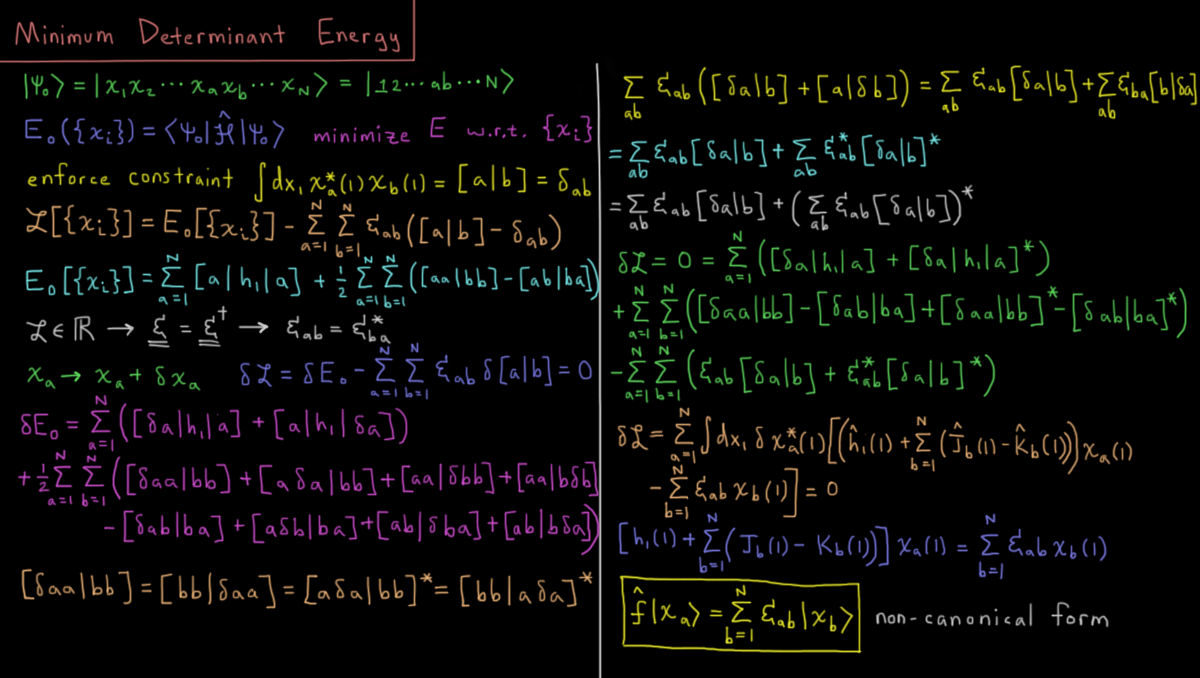 Minimum Determinant Energy
|Ψ₀⟩ = |χ₁χ₂⋯χₐχ_b⋯χ_N⟩ = |12⋯ab⋯N⟩
E₀({χᵢ}) = ⟨Ψ₀|Ĥ|Ψ₀⟩ minimize E w.r.t. {χᵢ}
enforce constraint ∫dx₁ χₐ*(1)χ_b(1) = [a|b] = δ_ab
ℒ[{χᵢ}] = E₀[{χᵢ}] - Σ_{a=1}^N Σ_{b=1}^N ε_ab([a|b] - δ_ab)
E₀[{χᵢ}] = Σ_{a=1}^N [a|h₁|a] + ½ Σ_{a=1}^N Σ_{b=1}^N ([aa|bb] - [ab|ba])
ℒ ∈ ℝ → ε = ε† → ε_ab = ε_ba*
χₐ → χₐ + δχₐ δℒ = δE₀ - Σ_{a=1}^N Σ_{b=1}^N ε_ab δ[a|b] = 0
δE₀ = Σ_{a=1}^N ([δa|h₁|a] + [a|h₁|δa])
+ ½ Σ_{a=1}^N Σ_{b=1}^N ([δaa|bb] + [aδa|bb] + [aa|δbb] + [aa|bδb]
- [δab|ba] + [aδb|ba] + [ab|δba] + [ab|bδa])
[δaa|bb] = [bb|δaa] = [aδa|bb]* = [bb|aδa]*
Σ_ab ε_ab([δa|b] + [a|δb]) = Σ_ab ε_ab[δa|b] + Σ_ab ε_ba[b|δa]
= Σ_ab ε_ab[δa|b] + Σ_ab ε_ab*[δa|b]*
= Σ_ab ε_ab[δa|b] + (Σ_ab ε_ab[δa|b])*
δℒ = 0 = Σ_{a=1}^N ([δa|h₁|a] + [δa|h₁|a]*)
+ Σ_{a=1}^N Σ_{b=1}^N ([δaa|bb] - [δab|ba] + [δaa|bb]* - [δab|ba]*)
- Σ_{a=1}^N Σ_{b=1}^N (ε_ab[δa|b] + ε_ab*[δa|b]*)
δℒ = Σ_{a=1}^N ∫dx₁ δχₐ*(1)[(ĥ₁(1) + Σ_{b=1}^N (Ĵ_b(1) - K̂_b(1)))χₐ(1)
- Σ_{b=1}^N ε_ab χ_b(1)] = 0
[h₁(1) + Σ_{b=1}^N (J_b(1) - K_b(1))] χₐ(1) = Σ_{b=1}^N ε_ab χ_b(1)
f̂|χₐ⟩ = Σ_{b=1}^N ε_ab|χ_b⟩ non-canonical form